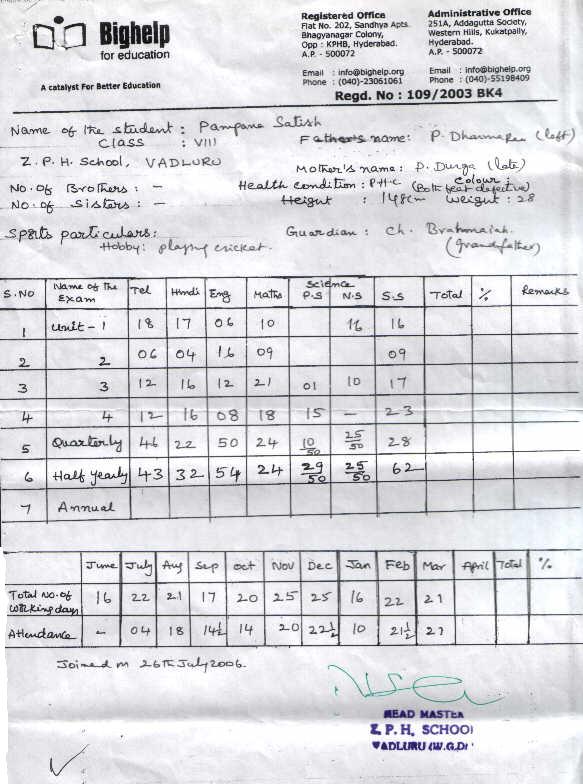 Bighelp
for education
A catalyst For Better Education
Registered Office
Flat No. 202, Sandhya Apts.
Bhagyanagar Colony,
Opp : KPHB, Hyderabad.
A.P. - 500072
Email : info@bighelp.org
Phone : (040)-23061061
Administrative Office
251A, Addagutta Society,
Western Hills, Kukatpally,
Hyderabad.
A.P. - 500072
Email : info@bighelp.org
Phone : (040)-55198409
Regd. No : 109/2003 BK4
Name of the student : Pampana Satish
CLASS : VIII
Father's name: P. (left)
Z. P. H. School, VADLURU
Mother's name : P. Durga (late)
No. of Brothers : –
Health condition : P.H.C Colour :
(Both feet defective)
No. of Sisters : –
Height : 148cm Weight : 28
Sports particulars:
Hobby: playing cricket.
Guardian : Ch. Brahmaiah.
(Grandfather)
S.NO Name of the Exam Tel Hindi Eng Maths Science P.S N.S S.S Total % Remarks
1 Unit - 1 18 17 06 10 16 16
2 2 06 04 16 09 09
3 3 12 16 12 21 01 10 17
4 4 12 16 08 18 15 – 23
5 Quarterly 46 22 50 24 10/50 25/50 28
6 Half yearly 43 32 54 24 29/50 25/50 62
7 Annual
June July Aug Sep Oct Nov Dec Jan Feb Mar April Total %
Total No. of working days 16 22 21 17 20 25 25 16 22 21
Attendance – 04 18 14½ 14 20 22½ 10 21½ 21
Joined on 26th July 2006.
HEAD MASTER
Z. P. H. SCHOOL
VADLURU (W.G.Dt